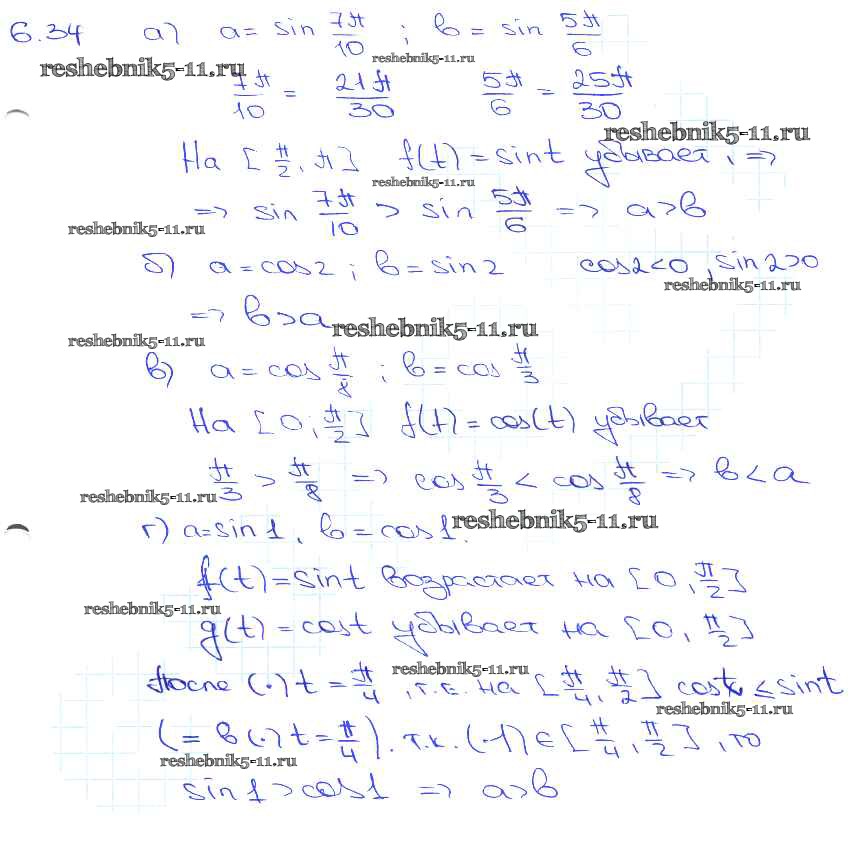 6.34 а) a = sin 7π/10 ; b = sin 5π/6
reshebnik5-11.ru reshebnik5-11.ru
7π/10 = 21π/30 5π/6 = 25π/30
reshebnik5-11.ru
На [π/2, π] f(t) = sin t убывает, =>
reshebnik5-11.ru
=> sin 7π/10 > sin 5π/6 => a > b
reshebnik5-11.ru
б) a = cos2 ; b = sin2 cos2<0, sin2>0
reshebnik5-11.ru
=> b > a
reshebnik5-11.ru
reshebnik5-11.ru
в) a = cos π/8 ; b = cos π/3
На [0; π/2] f(t) = cos(t) убывает
π/3 > π/8 => cos π/3 < cos π/8 => b < a
reshebnik5-11.ru
г) a = sin1, b = cos1.
reshebnik5-11.ru
f(t) = sin t возрастает на [0, π/2]
reshebnik5-11.ru
g(t) = cos t убывает на [0, π/2]
reshebnik5-11.ru
После (·) t = π/4, т.е. на [π/4, π/2] cos t ≤ sin t
reshebnik5-11.ru
(= в (·) t = π/4). т.к. (·1) ∈ [π/4, π/2], то
reshebnik5-11.ru
sin1 > cos1 => a > b